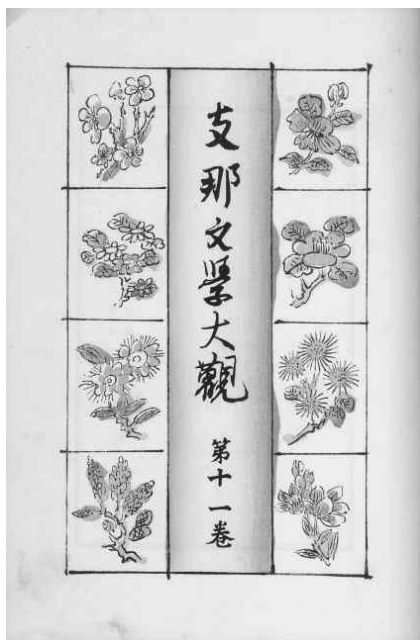 支那文學大觀
第十一卷